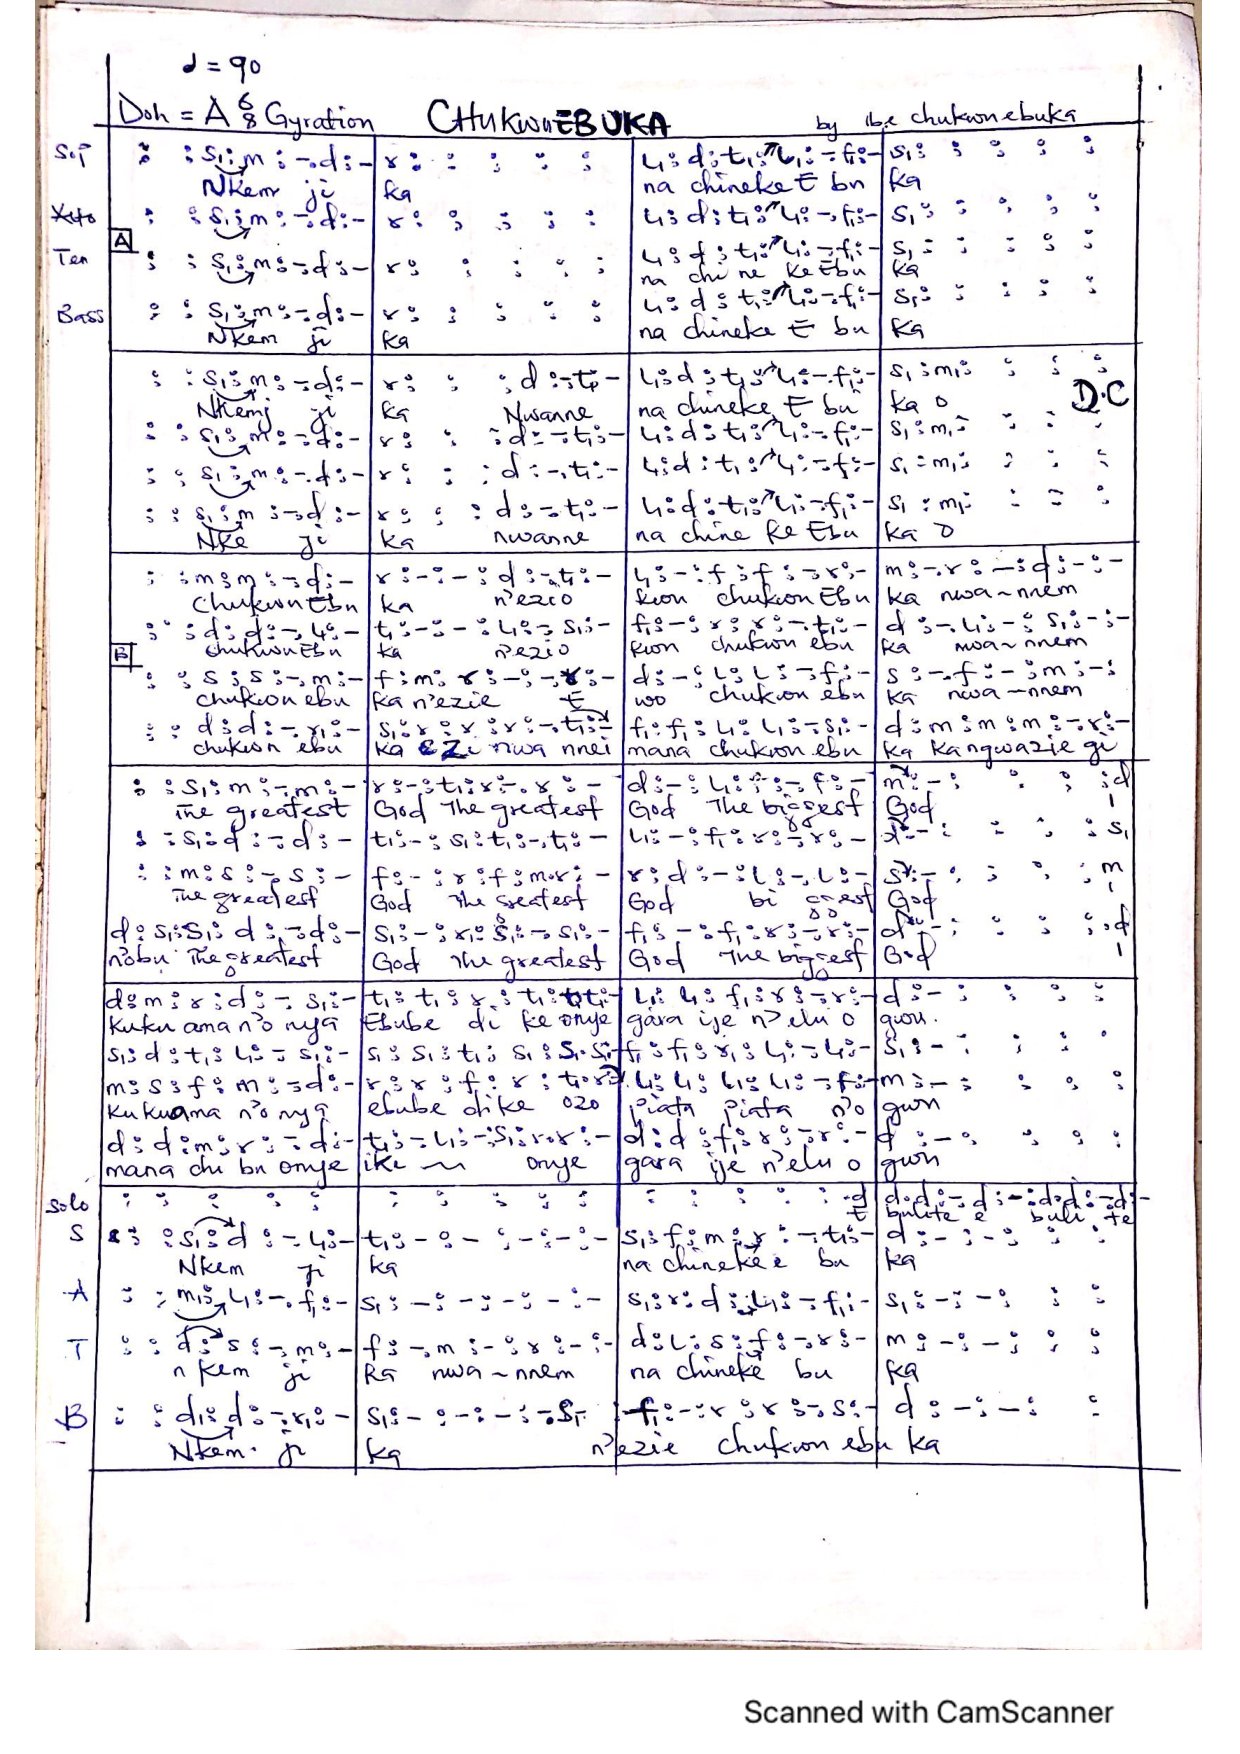 d = 90
Doh = A 6/8 Gyration CHUKWUEBUKA by ibe chukwuebuka
: : s₁ : m : - . d : - | r : : : : : | l₁ : d : t₁ : l₁ : - . f₁ : - | s₁ : : : : :
Nkem ji | ka | na chineke E bu | ka
Alto : : s₁ : m : - : d : - | r : : : : : | l₁ : d : t₁ : l₁ : - . f₁ : - | s₁ : : : : :
A
Ten : : s₁ : m : - : d : - | r : : : : : | l₁ : d : t₁ : l₁ : - . f₁ : - | s₁ : : : : :
na chi ne ke Ebu | ka
Bass : : s₁ : m : - . d : - | r : : : : : | l₁ : d : t₁ : l₁ : - . f₁ : - | s₁ : : : : :
Nkem ji | ka | na chineke E bu | ka
: : s₁ : m : - . d : - | r : : : d : - t₁ - | l₁ : d : t₁ : l₁ : - . f₁ : - | s₁ : m₁ : : : :
ji | ka Nwanne | na chineke E bu | ka o D.C
: : s₁ : m : - . d : - | r : : : d : - t₁ : - | l₁ : d : t₁ : l₁ : - . f₁ : - | s₁ : m₁ : : : :
: : s₁ : m : - . d : - | r : : : d : - . t₁ : - | l₁ : d : t₁ : l₁ : - f₁ : - | s₁ : m₁ : : : :
: : s₁ : m : - . d : - | r : : : d : - t₁ : - | l₁ : d : t₁ : l₁ : - f₁ : - | s₁ : m₁ : : : :
Nke ji | ka nwanne | na chine ke Ebu | ka o
: : m : m : - . d : - | r : - : - : d : - . t₁ : - | l₁ : - : f : f : - . r : - | m : - . r : - : d : - : -
Chukwu Ebu | ka n'ezio | kwu chukwu Ebu | ka nwa~nnem
: : d : d : - . l₁ : - | t₁ : - : - : l₁ : - s₁ : - | f₁ : - : r : r : - . t₁ : - | d : - . l₁ : - : s₁ : - : -
chukwu Ebu | ka n'ezio | kwu chukwu ebu | ka nwa~nnem
B
: : s : s : - . m : - | f : m : r : - : - . r : - | d : - : l : l : - . f : - | s : - . f : - : m : - :
chukwu ebu | ka n'ezie E | wo chukwu ebu | ka nwa~nnem
: : d : d : - . r₁ : - | s₁ : r : r : r : - . t₁ : - | f₁ : f₁ : l₁ : l₁ : - . s₁ : - | d : m : m : m : - . r : -
chukwu ebu | ka EZI nwa nnei | mana chukwu ebu | ka kangwazie gi
: : s₁ : m : - . m : - | r : - : t₁ : r : - . r : - | d : - : l₁ : f : - f : - | m : - : : : : d
The greatest | God The greatest | God The biggest | God I
: : s₁ : d : - d : - | t₁ : - : s₁ : t₁ : - . t₁ : - | l₁ : - : f₁ : r : - r : - | : - : : : : s₁
: : m : s : - . s : - | f : - : r : f : m . r : - | r : d : - : l : - . l : - | s : - : : : : m
The greatest | God The greatest | God bi ggest | God I
d : s₁ : s₁ : d : - . d : - | s₁ : - : r₁ : s₁ : - s₁ : - | f₁ : - : f₁ : r : - r : - | d : - : : : : d
n'obu The greatest | God The greatest | God The biggest | God I
d : m : r : d : - s₁ : - | t₁ : t₁ : r : t₁ : t₁ : - | l₁ : l₁ : f₁ : r : - r : - | d : - : : : :
Kuku ama n'o nya | Ebube di ke onye | gara ije n'elu o | gwu.
s₁ : d : t₁ : l₁ : - s₁ : - | s₁ : s₁ : t₁ : s₁ : s₁ . s₁ : - | f₁ : f₁ : r₁ : l₁ : - l₁ : - | s₁ : - : : : :
m : s : f : m : - d : - | r : r : f : r : t₁ . r | l₁ : l₁ : l₁ : l₁ : - f : - | m : - : : : :
Kukuama n'o nya | ebube dike ozo | piata piata n'o | gwu
d : d : m : r : - d : - | t₁ : - l₁ : - : s₁ : r . r : - | d : d : f₁ : r : - r : - | d : - : : : :
mana chi bu onye | ike ~ onye | gara ije n'elu o | gwu
Solo : : : : : | : : : : : | : : : : : . d | d : d : - d : - : d : d : - d : -
E | bulite e buli te
S : : s₁ : d : - l₁ : - | t₁ : - : - : - : - : - | s₁ : f : m : r : - t₁ : - | d : - : - : : :
Nkem ji | ka | na chineke e bu | ka
A : : m₁ : l₁ : - . f₁ : - | s₁ : - : - : - : - : - | s₁ : r : d : l₁ : - f₁ : - | s₁ : - : - : : :
T : : d : s : - . m : - | f : - . m : - : r : - : - | d : l : s : f : - r : - | m : - : - : : :
n kem ji | ka nwa~nnem | na chineke bu | ka
B : : d₁ : d : - . r₁ : - | s₁ : - : - : - : - . s₁ - | f₁ : - : r : r : - s : - | d : - : - : :
Nkem ji | ka n'ezie chukwu ebu ka
Scanned with CamScanner